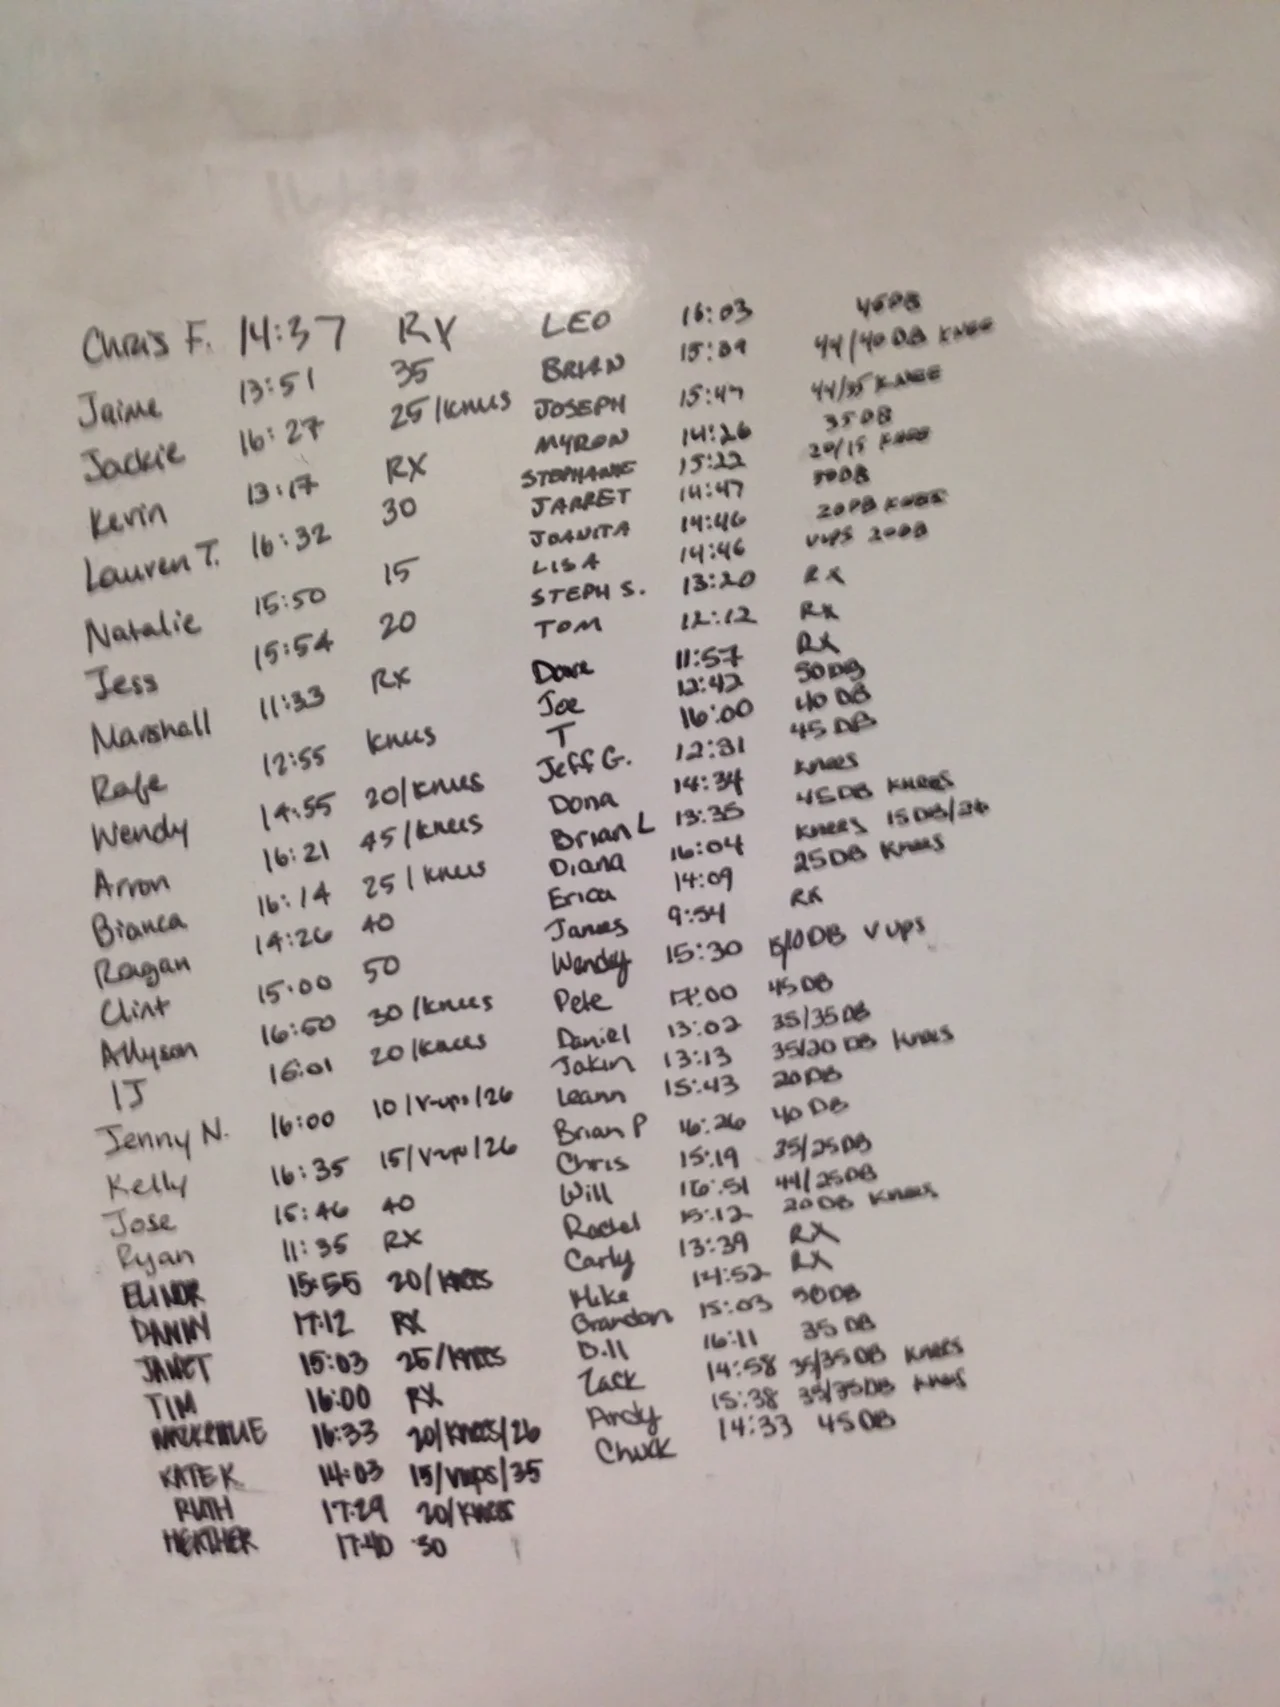 Chris F. 14:37 RX
Jaime 13:51 35
Jackie 16:27 25/knees
Kevin 13:17 RX
Lauren T. 16:32 30
Natalie 15:50 15
Jess 15:54 20
Marshall 11:33 RX
Rafe 12:55 knees
Wendy 14:55 20/knees
Arron 16:21 45/knees
Bianca 16:14 25/knees
Ragan 14:26 40
Clint 15:00 50
Allyson 16:50 30/knees
IJ 16:01 20/knees
Jenny N. 16:00 10/V-ups/26
Kelly 16:35 15/V-ups/26
Jose 15:46 40
Ryan 11:35 RX
ELINOR 15:55 20/KNEES
DANNY 17:12 RX
JANET 15:03 25/KNEES
TIM 16:00 RX
16:33 20/KNEES/26
KATE K 14:03 15/Vups/35
RUTH 17:29 20/KNEES
HEATHER 17:40 30
LEO 16:03 45DB
BRIAN 15:39 44/40 DB KNEE
JOSEPH 15:47 44/35 KNEE
MYRON 14:26 35DB
STEPHANIE 15:22 20/15 KNEE
JARRET 14:47 50DB
JOANITA 14:46 20DB KNEES
LISA 14:46 VUPS 20DB
STEPH S. 13:20 RX
TOM 12:12 RX
Dave 11:57 RX
Joe 12:42 50DB
T 16:00 40 DB
Jeff G. 12:31 45 DB
Dona 14:34 Knees
Brian L 13:35 45DB Knees
Diana 16:04 Knees 15DB/26
Erica 14:09 25DB Knees
James 9:54 RX
Wendy 15:30 15/10DB V ups
Pete 17:00 45DB
Daniel 13:02 35/35DB
Jakin 13:13 35/20 DB Knees
Leann 15:43 20DB
Brian P 16:26 40 DB
Chris 15:19 35/25DB
Will 16:51 44/25DB
Rachel 15:12 20DB Knees
Carly 13:39 RX
Mike 14:52 RX
Brandon 15:03 50DB
Bill 16:11 35 DB
Zack 14:58 35/35DB Knees
Andy 15:38 35/35DB Knees
Chuck 14:33 45DB